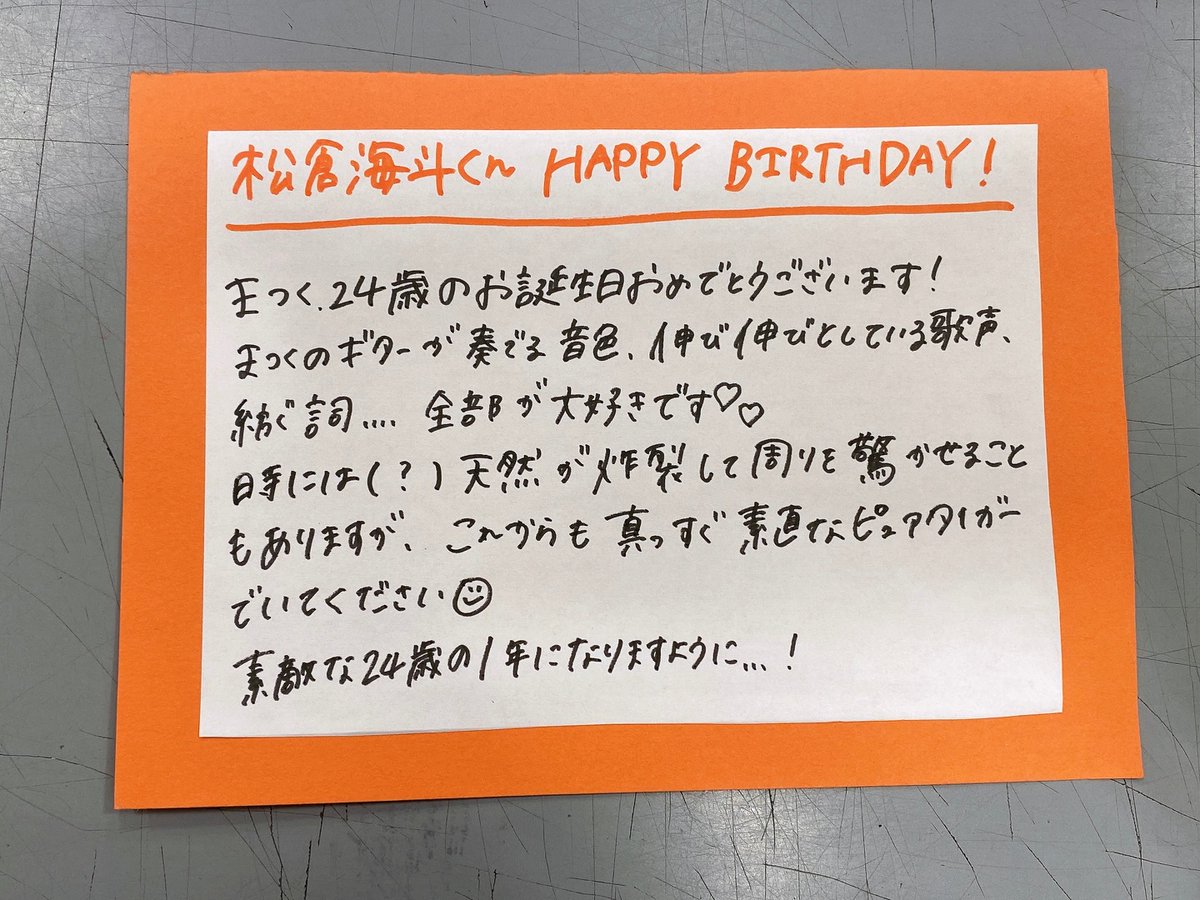 松倉海斗くん HAPPY BIRTHDAY!
まつく、24歳のお誕生日おめでとうございます!
まつくのギターが奏でる音色、伸び伸びとしている歌声、
紡ぐ詞.... 全部が大好きです♡♡
時には(?)天然が炸裂して周りを驚かせること
もありますが、これからも真っすぐ素直なピュアタイガー
でいてください☺
素敵な24歳の1年になりますように...!